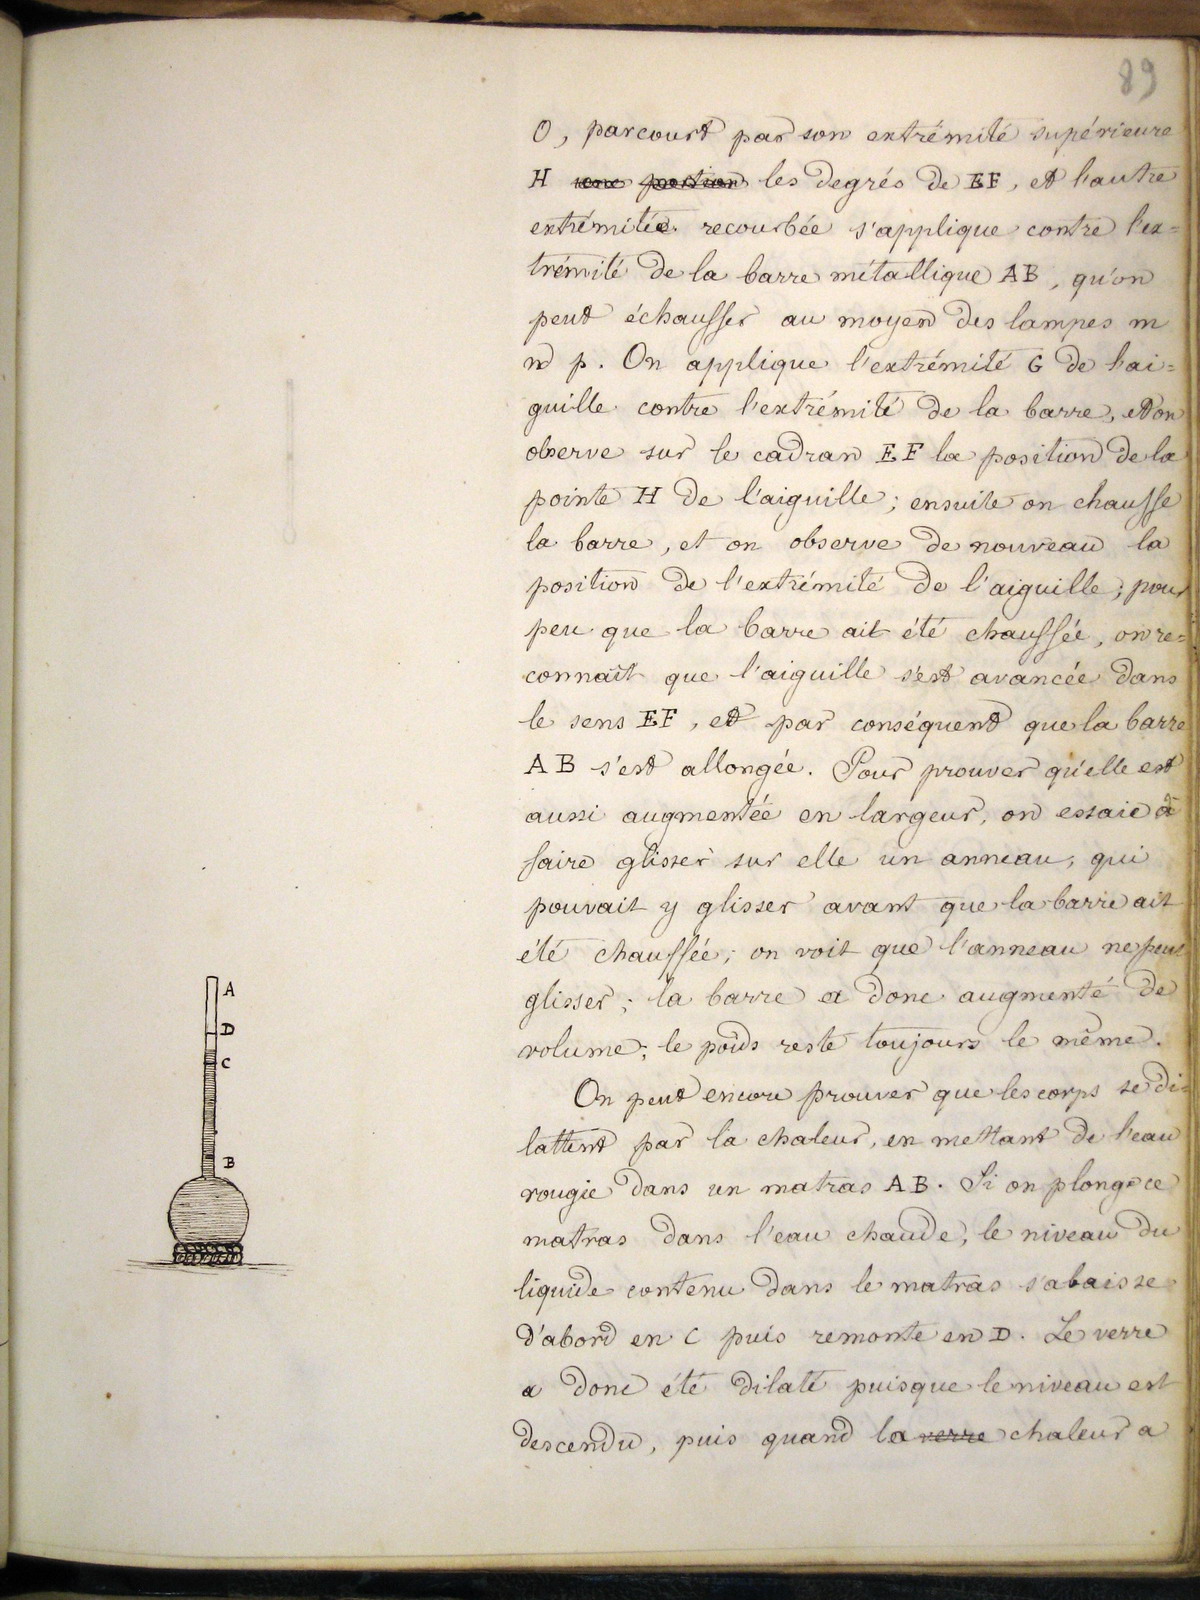 89
O, parcourt par son extrémité supérieure
H une portion les degrés de EF, et l'autre
extrémitée recourbée s'applique contre l'ex=
trémité de la barre métallique AB, qu'on
peut échauffer au moyen des lampes m
n p. On applique l'extrémité G de l'ai=
guille contre l'extrémité de la barre, et on
observe sur le cadran EF la position de la
pointe H de l'aiguille; ensuite on chauffe
la barre, et on observe de nouveau la
position de l'extrémité de l'aiguille; pour
peu que la barre ait été chauffée, on re=
connaît que l'aiguille s'est avancée dans
le sens EF, et par conséquent que la barre
AB s'est allongée. Pour prouver qu'elle est
aussi augmentée en largeur, on essaie à
faire glisser sur elle un anneau, qui
pouvait y glisser avant que la barre ait
été chauffée; on voit que l'anneau ne peut
glisser; la barre a donc augmenté de
volume; le poids reste toujours le même.
On peut encore prouver que les corps se di=
lattent par la chaleur, en mettant de l'eau
rougie dans un matras AB. Si on plonge ce
matras dans l'eau chaude, le niveau du
liquide contenu dans le matras s'abaisse
d'abord en C puis remonte en D. Le verre
a donc été dilaté puisque le niveau est
descendu, puis quand la verre chaleur a
A
D
C
B